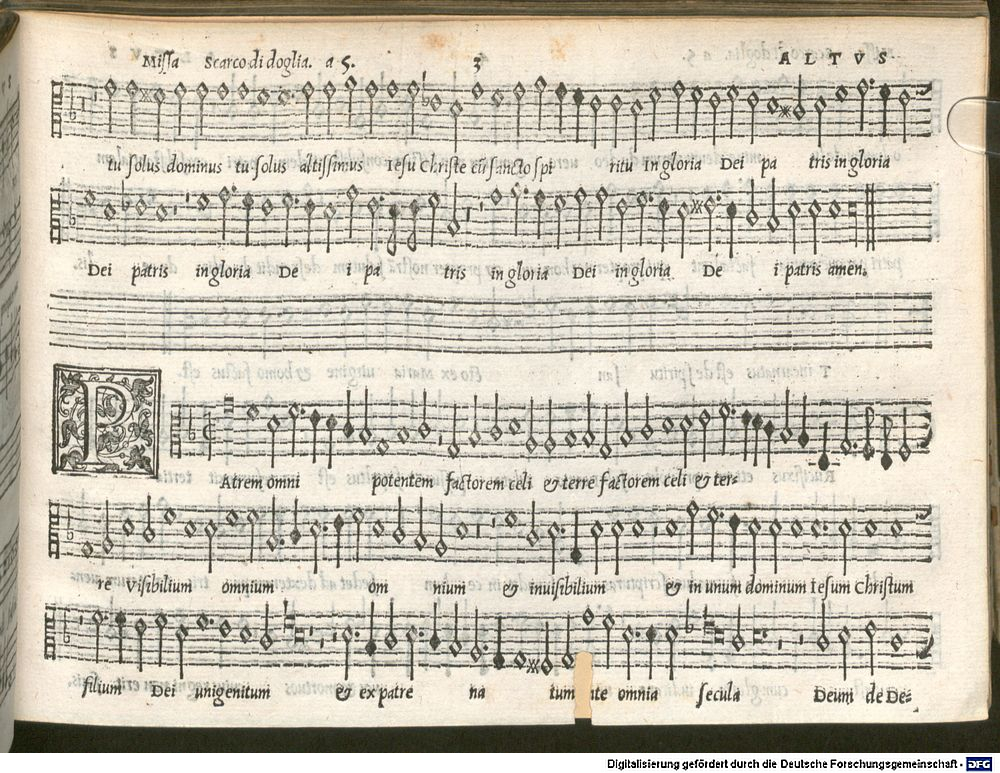 Missa Scarco di doglia. a 5. 3 ALTVS
tu solus dominus tu solus altissimus Iesu Christe cũ sancto spi ritu in gloria Dei pa tris in gloria
Dei patris in gloria De i pa tris in gloria Dei in gloria De i patris amen.
P
Atrem omni potentem factorem celi & terre factorem celi & ter-
re Visibilium omnium om nium & inuisibilium & in unum dominum Iesum Christum
filium Dei unigenitum & ex patre na tum nte omnia secula Deum de De-
Digitalisierung gefördert durch die Deutsche Forschungsgemeinschaft - DFG